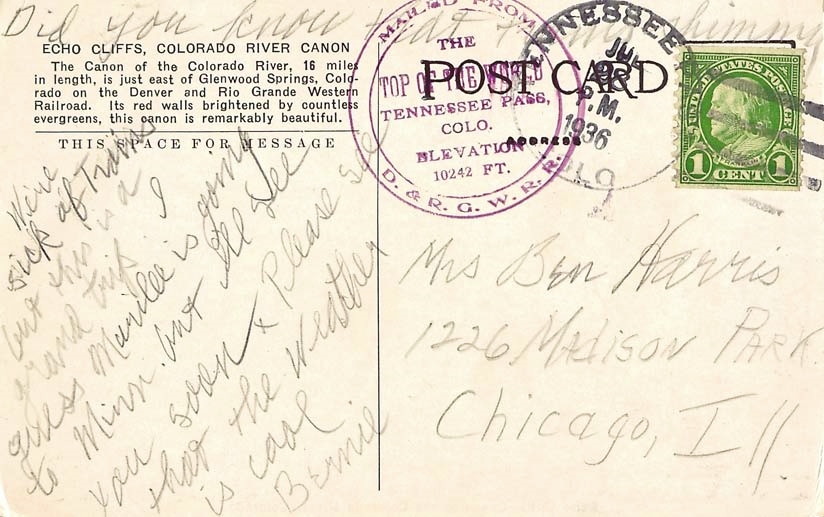 Did you know that
ECHO CLIFFS, COLORADO RIVER CANON
The Canon of the Colorado River, 16 miles
in length, is just east of Glenwood Springs, Colo-
rado on the Denver and Rio Grande Western
Railroad. Its red walls brightened by countless
evergreens, this canon is remarkably beautiful.
THIS SPACE FOR MESSAGE
We're
sick of Trains
but this is a
grand trip I
guess Marilee is going
to Minn. but I'll see
you soon & Please see
that the Weather
is cool
Bernie
MAILED FROM
THE
TOP OF THE WORLD
TENNESSEE PASS,
COLO.
ELEVATION
10242 FT.
D. & R. G. W. R. R.
POST CARD
ADDRESS
TENNESSEE
JUL
P.M.
1936
COLO
UNITED STATES POSTAGE
FRANKLIN
1 CENT 1
Mrs Ben Harris
1226 Madison Park
Chicago, Ill.